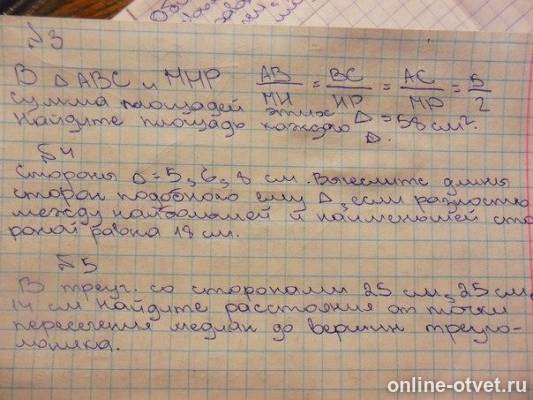 №3
В △ ABC и MHP AB/MH = BC/HP = AC/MP = 5/2
сумма площадей этих △ = 58 см².
Найдите площадь каждого △.
№4
Стороны △ = 5, 6, 8 см. Вычеслите длины
сторон подобного ему △, если разность
между наибольшей и наименьшей сто
роной равна 18 см.
№5
В треуг. со сторонами 25 см, 25 см,
14 см найдите расстояние от точки
пересечения медиан до вершин треуго-
льника.
online-otvet.ru